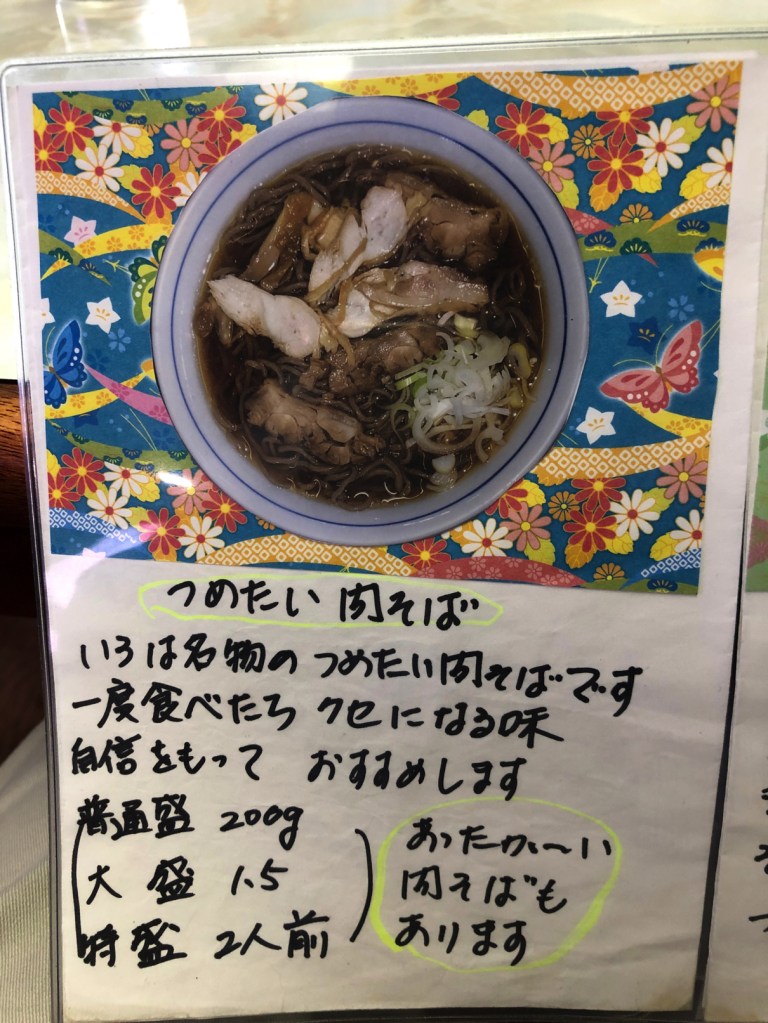 つめたい 肉そば
いろは名物の つめたい肉そばです
一度食べたら クセになる味
自信をもって おすすめします
普通盛 200g
大 盛 1.5
特盛 2人前
あったか〜い
肉そばも
あります